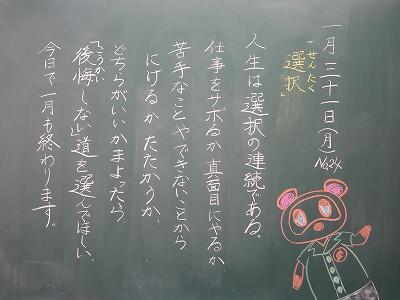 一月三十一日(月) No.24
せんたく
「選択」
人生は選択の連続である。
仕事をサボるか真面目にやるか、
苦手なことやできないことから
にげるか、たたかうか、
どちらがいいかまよったら、
こうかい
「後悔しない」道を選んでほしい。
今日で一月も終わります。